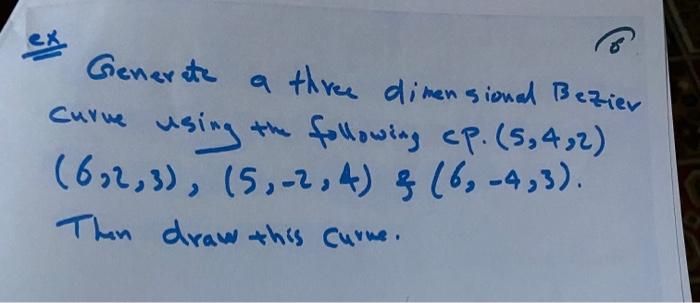 ex
8
Generate a three dimensional Bezier
curve using the following cp. (5,4,2)
(6,2,3), (5,-2,4) & (6,-4,3).
Then draw this curve.